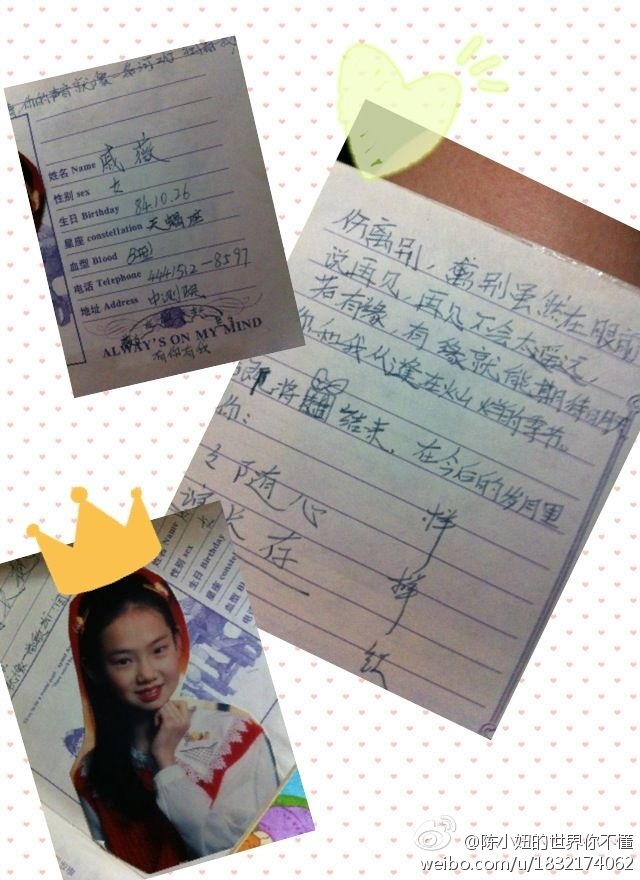 你的声音就像一条河
姓名 Name 戚薇
性别 sex 女
生日 Birthday 84.10.26
星座 constellation 天蝎座
血型 Blood B型
电话 Telephone 4441512-8597
地址 Address 中测院
ALWAY'S ON MY MIND
有你有我
伤离别，离别虽然在眼前
说再见，再见不会太遥远
若有缘，有缘就能期待明天
你和我从逢在灿烂的季节。
即将 结束，在今后的岁月里
随心
长存
样
样
红
姓名 Name
性别 sex
生日 Birthday
星座 conste
血型 B
@陈小妞的世界你不懂
weibo.com/u/1832174062